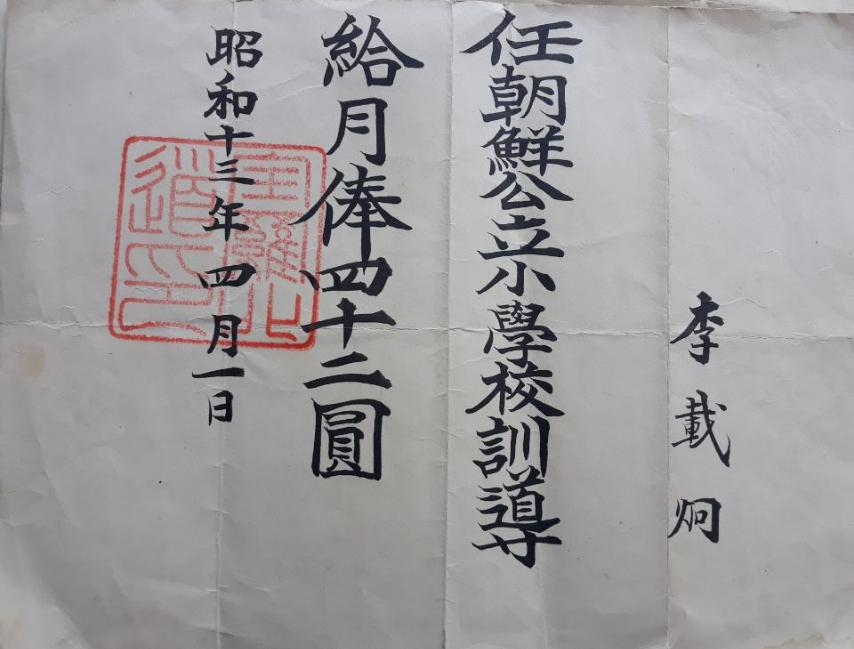 李載炯
任朝鮮公立小學校訓導
給月俸四十二圓
昭和十三年四月一日
全羅北
道之印